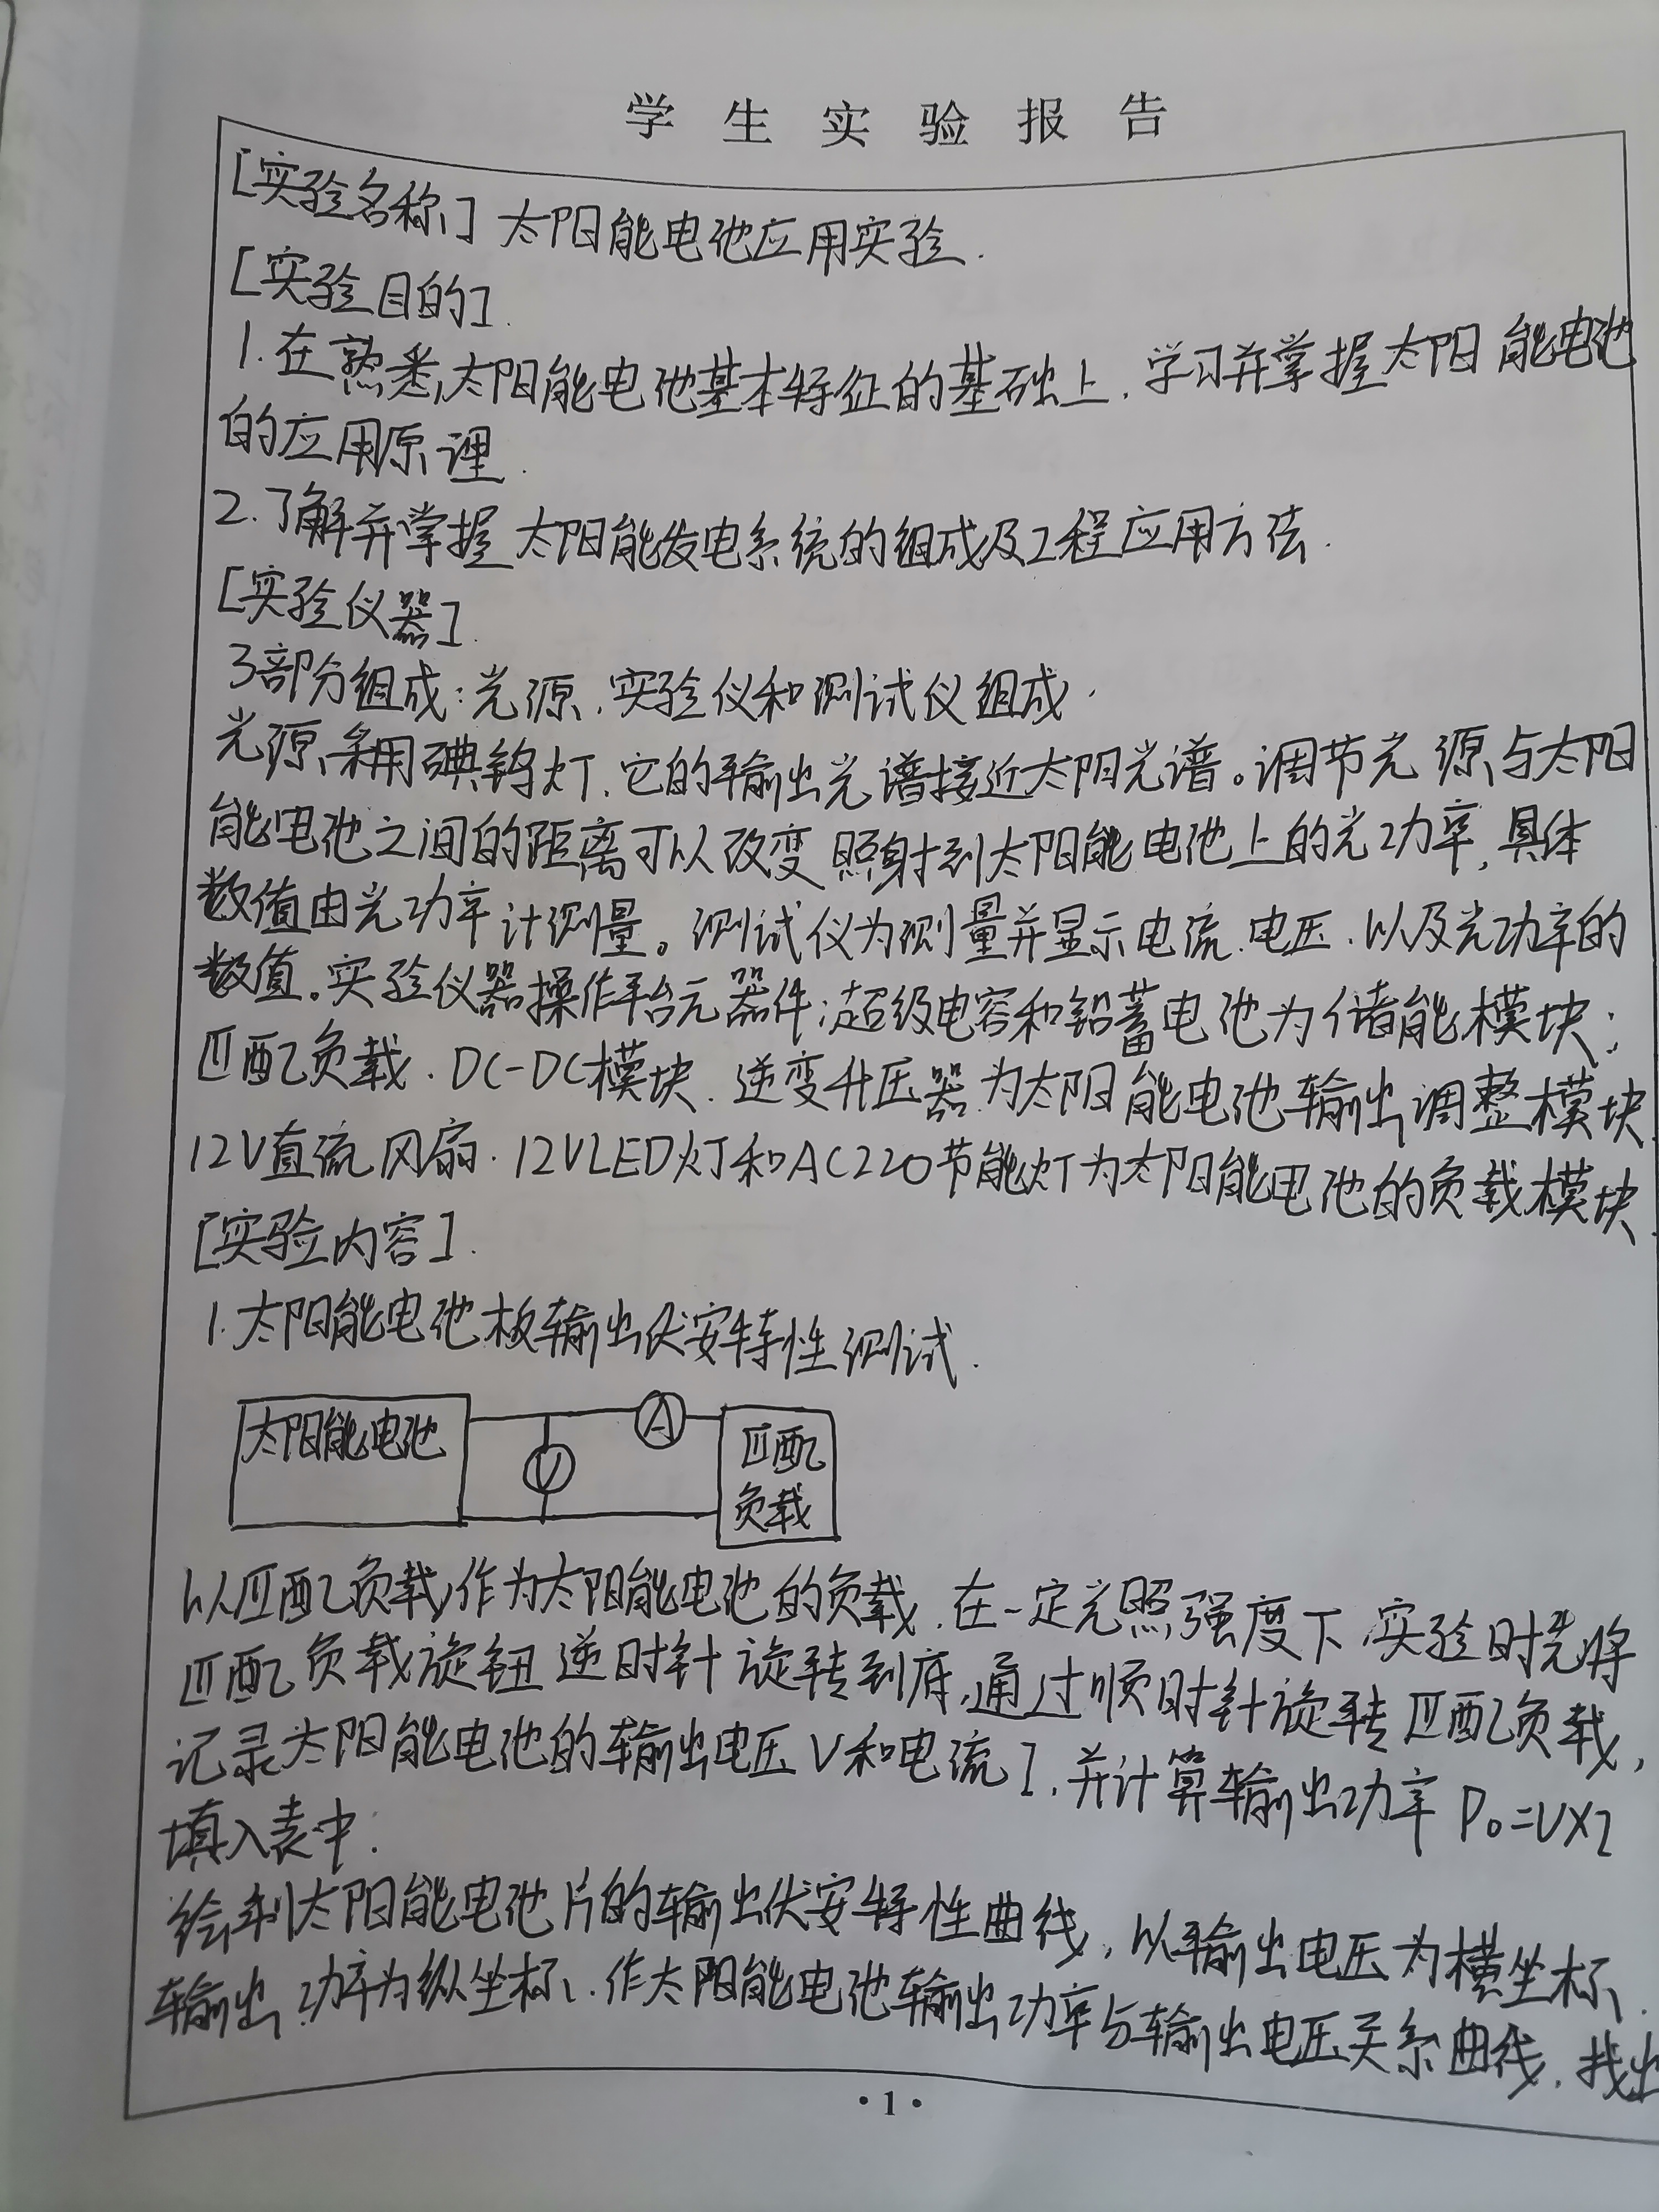 学生实验报告
[实验名称] 太阳能电池应用实验.
[实验目的].
1.在熟悉太阳能电池基本特征的基础上,学习并掌握太阳能电池
的应用原理.
2.了解并掌握太阳能发电系统的组成及工程应用方法.
[实验仪器].
3部分组成:光源、实验仪和测试仪组成.
光源采用碘钨灯,它的输出光谱接近太阳光谱。调节光源与太阳
能电池之间的距离可以改变照射到太阳能电池上的光功率,具体
数值由光功率计测量。测试仪为测量并显示电流、电压、以及光功率的
数值。实验仪器操作平台元器件:超级电容和铅蓄电池为储能模块;
匹配负载、DC-DC模块、逆变升压器为太阳能电池输出调整模块
12V直流风扇、12VLED灯和AC220节能灯为太阳能电池的负载模块.
[实验内容].
1.太阳能电池板输出伏安特性测试.
太阳能电池
V
A
匹配
负载
以匹配负载作为太阳能电池的负载,在一定光照强度下,实验时先将
匹配负载旋钮逆时针旋转到底,通过顺时针旋转匹配负载,
记录太阳能电池的输出电压V和电流I,并计算输出功率P0=V×I
填入表中.
绘制太阳能电池片的输出伏安特性曲线,以输出电压为横坐标、
输出功率为纵坐标、作太阳能电池输出功率与输出电压关系曲线,找出
·1·